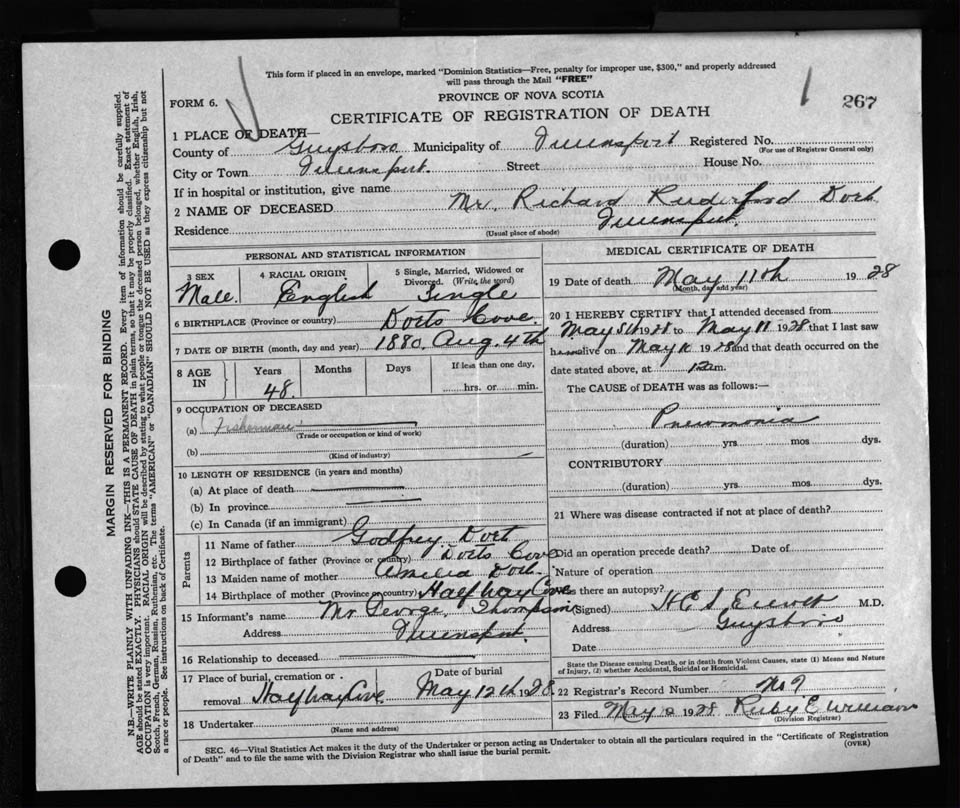 This form if placed in an envelope, marked "Dominion Statistics—Free, penalty for improper use, $300," and properly addressed
will pass through the Mail "FREE"
PROVINCE OF NOVA SCOTIA
FORM 6.
CERTIFICATE OF REGISTRATION OF DEATH
267
1 PLACE OF DEATH—
County of Guysboro Municipality of Queensport Registered No.
(For use of Registrar General only)
City or Town Queensport. Street House No.
If in hospital or institution, give name
2 NAME OF DECEASED Mr. Richard Ruderford Dort
Residence Queensport.
(Usual place of abode)
PERSONAL AND STATISTICAL INFORMATION
3 SEX 4 RACIAL ORIGIN 5 Single, Married, Widowed or
Divorced. (Write the word)
Male. English Single
6 BIRTHPLACE (Province or country) Dorts Cove.
7 DATE OF BIRTH (month, day and year) 1880. Aug. 4th
8 AGE IN Years Months Days If less than one day,
48. hrs. or min.
9 OCCUPATION OF DECEASED
(a) Fisherman
(Trade or occupation or kind of work)
(b)
(Kind of industry)
10 LENGTH OF RESIDENCE (in years and months)
(a) At place of death
(b) In province
(c) In Canada (if an immigrant)
Parents
11 Name of father Godfrey Dort
12 Birthplace of father (Province or country) Dorts Cove
13 Maiden name of mother Amelia Dort
14 Birthplace of mother (Province or country) Halfhay Cove
15 Informant's name Mr George Thompson
Address Queensport.
16 Relationship to deceased
17 Place of burial, cremation or Date of burial
removal Halfhay Cove May 12th 1928.
18 Undertaker
(Name and address)
MEDICAL CERTIFICATE OF DEATH
19 Date of death May 11th 1928
(Month, day and year)
20 I HEREBY CERTIFY that I attended deceased from
May 5th 1928 to May 11 1928 that I last saw
him alive on May 10 1928 and that death occurred on the
date stated above, at 12 m.
The CAUSE of DEATH was as follows:—
Pneumonia
(duration) yrs. mos. dys.
CONTRIBUTORY
(duration) yrs. mos. ds.
21 Where was disease contracted if not at place of death?
Did an operation precede death? Date of
Nature of operation
Was there an autopsy?
(Signed) M.D.
Address Guysboro
Date
State the Disease causing Death, or in death from Violent Causes, state (1) Means and Nature
of Injury, (2) whether Accidental, Suicidal or Homicidal.
22 Registrar's Record Number No 9
23 Filed May 1928 Ruby E Williams
(Division Registrar)
SEC. 46—Vital Statistics Act makes it the duty of the Undertaker or person acting as Undertaker to obtain all the particulars required in the "Certificate of Registration
of Death" and to file the same with the Division Registrar who shall issue the burial permit. (OVER)
MARGIN RESERVED FOR BINDING
N.B.—WRITE PLAINLY WITH UNFADING INK—THIS IS A PERMANENT RECORD. Every item of information should be carefully supplied.
AGE should be stated EXACTLY. PHYSICIANS should STATE CAUSE OF DEATH in plain terms, so that it may be properly classified. Exact statement of
OCCUPATION is very important. RACIAL ORIGIN will be described by stating to what people or tongue the deceased person belonged, whether English, Irish,
Scotch, French, German, Russian, Ruthenian, etc. The terms "AMERICAN" or "CANADIAN" SHOULD NOT BE USED as they express citizenship but not
a race or people. See instructions on back of Certificate.